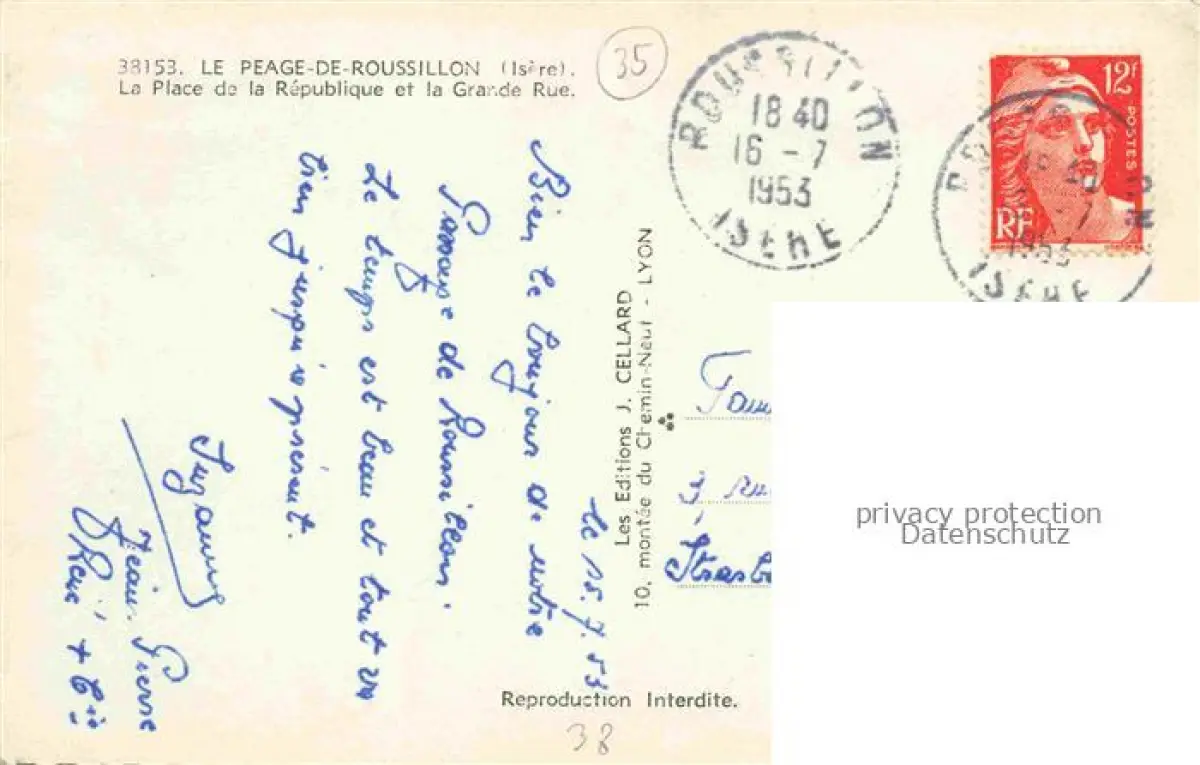 38153. LE PEAGE-DE-ROUSSILLON (Isère).
La Place de la République et la Grande Rue.
35
ROUSSILLON
18 40
16 - 7
1953
ISERE
12F
POSTES
RF
1953
ISERE
le 15.7.53
Bien le bonjour de notre
passage de Roussillon.
Le temps est beau et tout va
bien jusqu'à présent.
Suzanne
Jean-Pierre
René + Cie
Les Editions J. CELLARD
10, montée du Chemin-Neuf - LYON
Fam
3, rue
Strasb
privacy protection
Datenschutz
Reproduction Interdite.
38